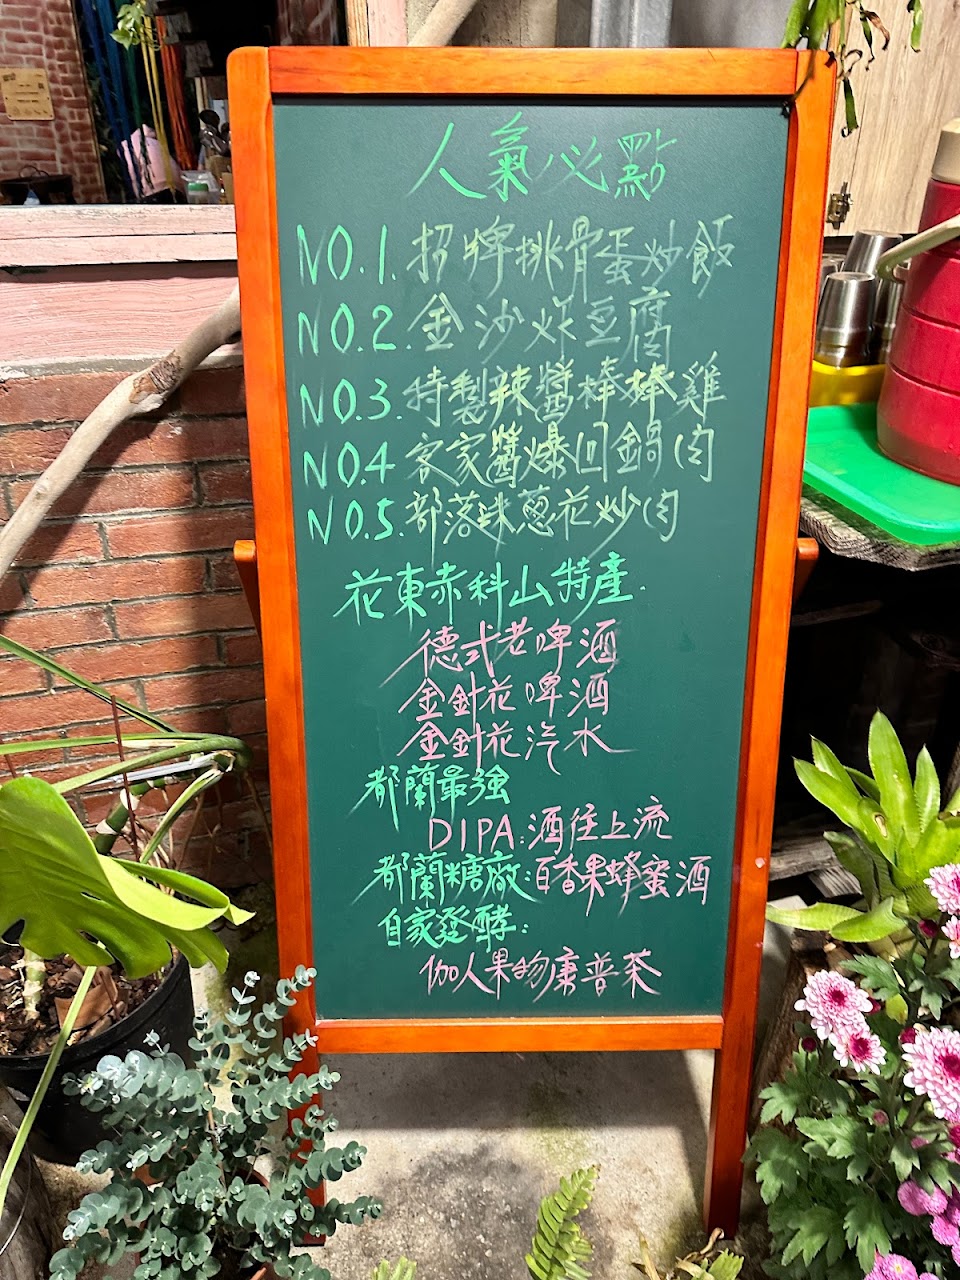 人氣必點
NO.1. 招牌排骨蛋炒飯
NO.2. 金沙炸豆腐
NO.3. 特製辣醬棒棒雞
NO.4 客家醬爆回鍋肉
NO.5. 部落迷蔥花炒肉
花東赤科山特產.
德式老啤酒
金針花啤酒
金針花汽水
都蘭最強
DIPA:酒往上流
都蘭糖廠:百香果蜂蜜酒
自家發酵:
伽人果物康普茶